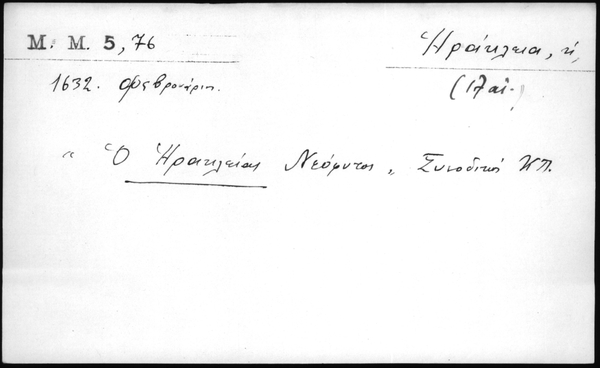 M. M. 5, 76
Ἡράκλεια, ἡ
1632. Φεβρουάριος.
(17 αἰ.)
" Ὁ Ἡρακλείας Νεόφυτος " Συνοδικοί ΚΠ.